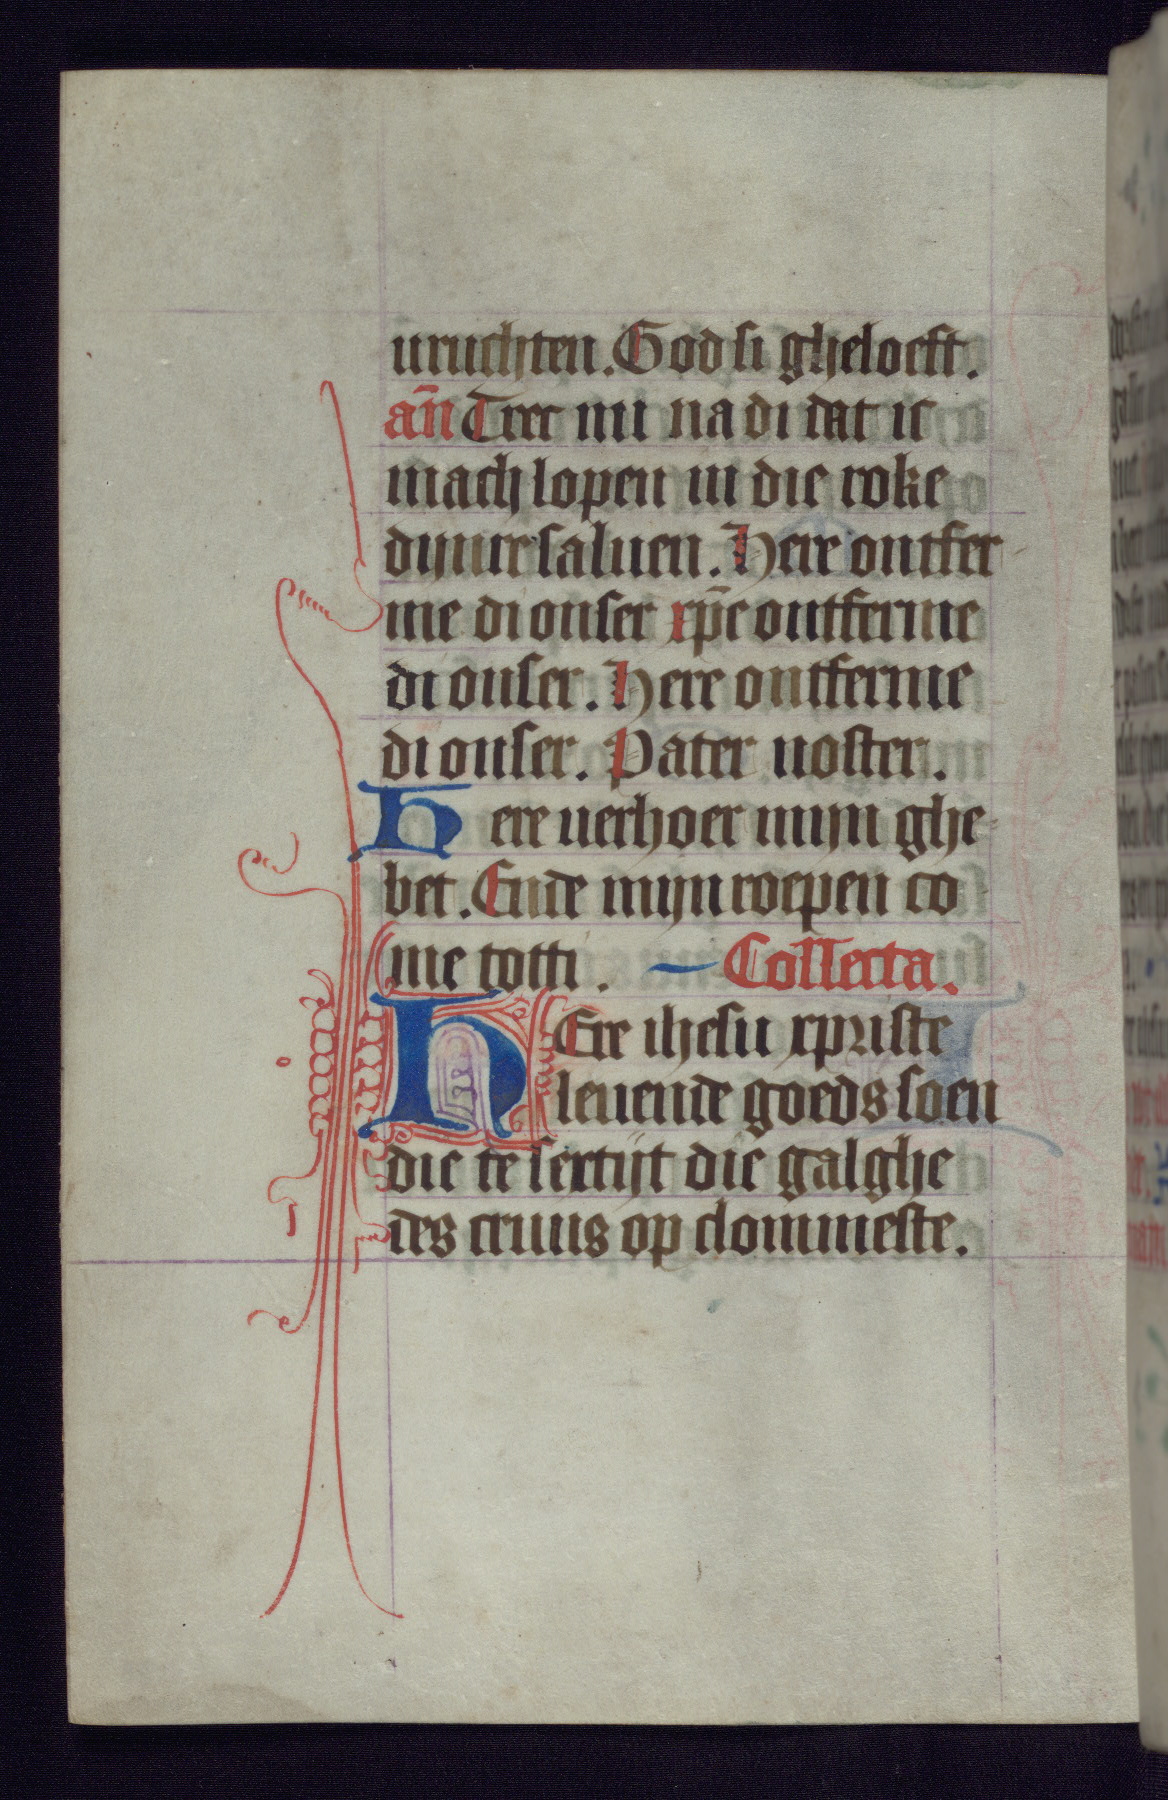 uruchten. God si gheloeft.
an̄ Trec mi na di dat ic
mach lopen in die roke
dijnre saluen. Here ontfer
me di onser xp̄e ontferme
di onser. Here ontferme
di onser. Pater noster.
Here uerhoer mijn ghe-
bet. Ende mijn roepen co
me totti. Collecta.
HEre ihesu xpriste
leuende goeds soen
die te sextijt die galghe
des cruus op clommeste.